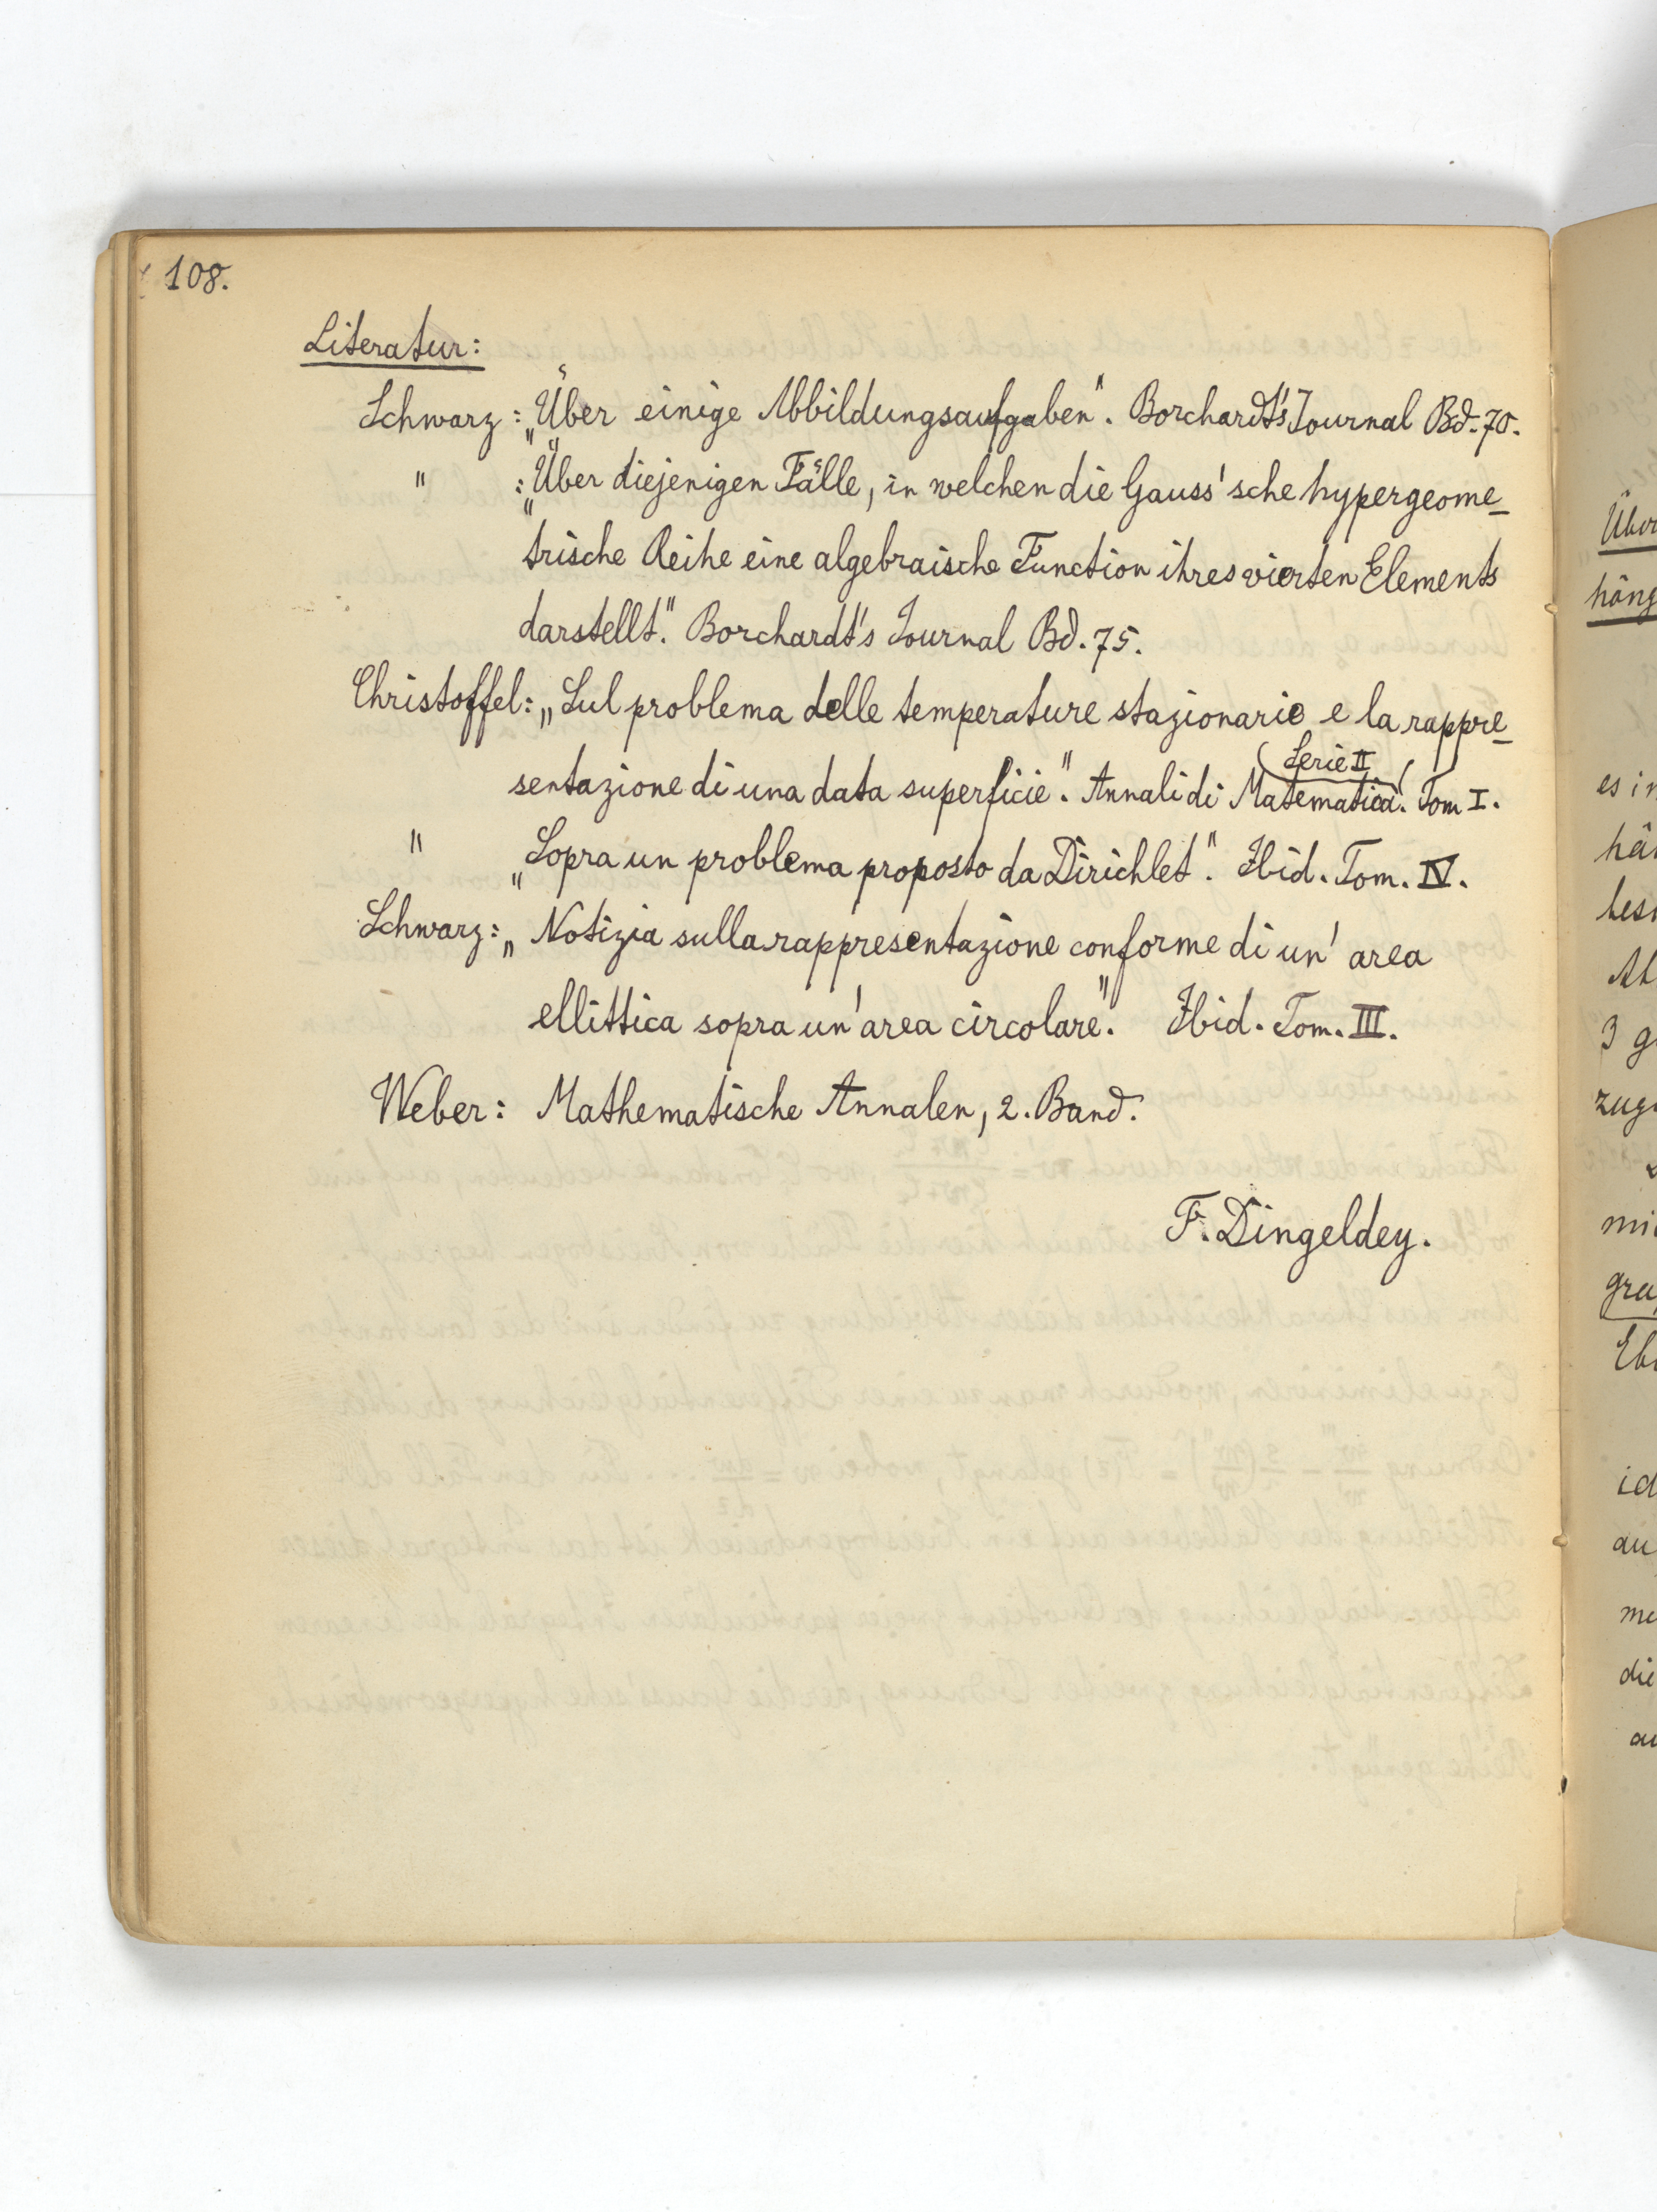 108.
Literatur:
Schwarz: „Über einige Abbildungsaufgaben". Borchardt's Journal Bd. 70.
" : „Über diejenigen Fälle, in welchen die Gauss'sche hypergeome-
trische Reihe eine algebraische Function ihres vierten Elements
darstellt." Borchardt's Journal Bd. 75.
Christoffel: „Sul problema delle temperature stazionarie e la rappre-
Serie II
sentazione di una data superficie". Annali di Matematica. Tom I.
" „Sopra un problema proposto da Dirichlet". Ibid. Tom. IV.
Schwarz: „Notizia sulla rappresentazione conforme di un' area
ellittica sopra un' area circolare". Ibid. Tom. III.
Weber: Mathematische Annalen, 2. Band.
F. Dingeldey.